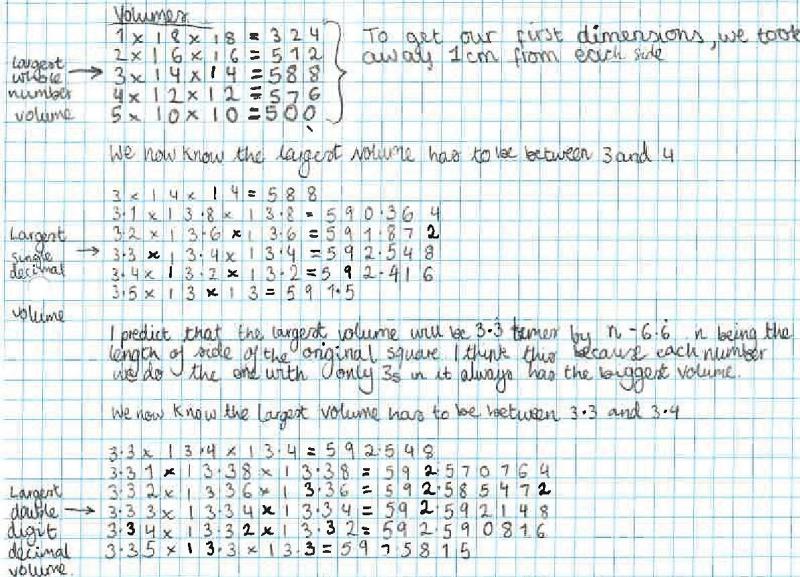 Volumes
1 x 18 x 18 = 324
2 x 16 x 16 = 512
3 x 14 x 14 = 588
4 x 12 x 12 = 576
5 x 10 x 10 = 500
To get our first dimensions, we took
away 1cm from each side
largest
whole
number
volume
We now know the largest volume has to be between 3 and 4
3 x 14 x 14 = 588
3.1 x 13.8 x 13.8 = 590.364
3.2 x 13.6 x 13.6 = 591.872
3.3 x 13.4 x 13.4 = 592.548
3.4 x 13.2 x 13.2 = 592.416
3.5 x 13 x 13 = 591.5
Largest
single
decimal
volume
I predict that the largest volume will be 3.3 times by n - 6.6 n being the
length of side of the original square I think this because each number
we do the one with only 3s in it always has the biggest volume.
We now know the largest volume has to be between 3.3 and 3.4
3.3 x 13.4 x 13.4 = 592.548
3.31 x 13.38 x 13.38 = 592.570764
3.32 x 13.36 x 13.36 = 592.585472
3.33 x 13.34 x 13.34 = 592.592148
3.34 x 13.32 x 13.32 = 592.590816
3.35 x 13.3 x 13.3 = 597.5815
Largest
double
digit
decimal
volume.